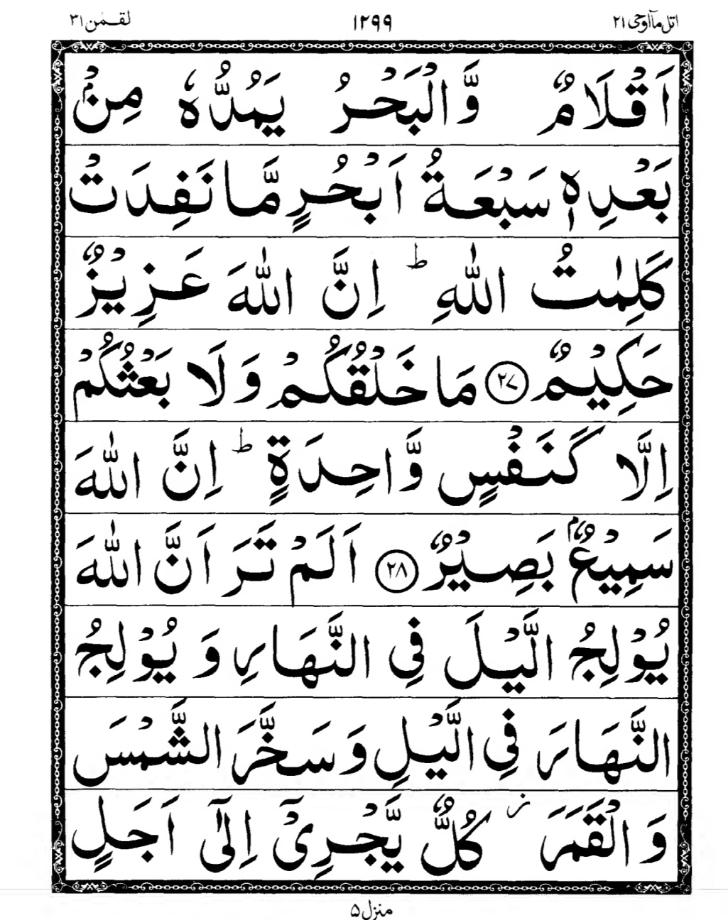 اتل مآاوحی ۲۱ ۱۲۹۹ لقمٰن ۳۱
اَقْلَامٌ وَّالْبَحْرُ یَمُدُّهٗ مِنْۢ
بَعْدِهٖ سَبْعَةُ اَبْحُرٍ مَّا نَفِدَتْ
كَلِمٰتُ اللّٰهِ ؕ اِنَّ اللّٰهَ عَزِیْزٌ
حَكِیْمٌ ۲۷ مَا خَلْقُكُمْ وَ لَا بَعْثُكُمْ
اِلَّا كَنَفْسٍ وَّاحِدَةٍ ؕ اِنَّ اللّٰهَ
سَمِیْعٌۢ بَصِیْرٌ ۲۸ اَلَمْ تَرَ اَنَّ اللّٰهَ
یُوْلِجُ الَّیْلَ فِی النَّهَارِ وَ یُوْلِجُ
النَّهَارَ فِی الَّیْلِ وَ سَخَّرَ الشَّمْسَ
وَ الْقَمَرَ ؗ كُلٌّ یَّجْرِیْۤ اِلٰۤی اَجَلٍ
منزل ۵